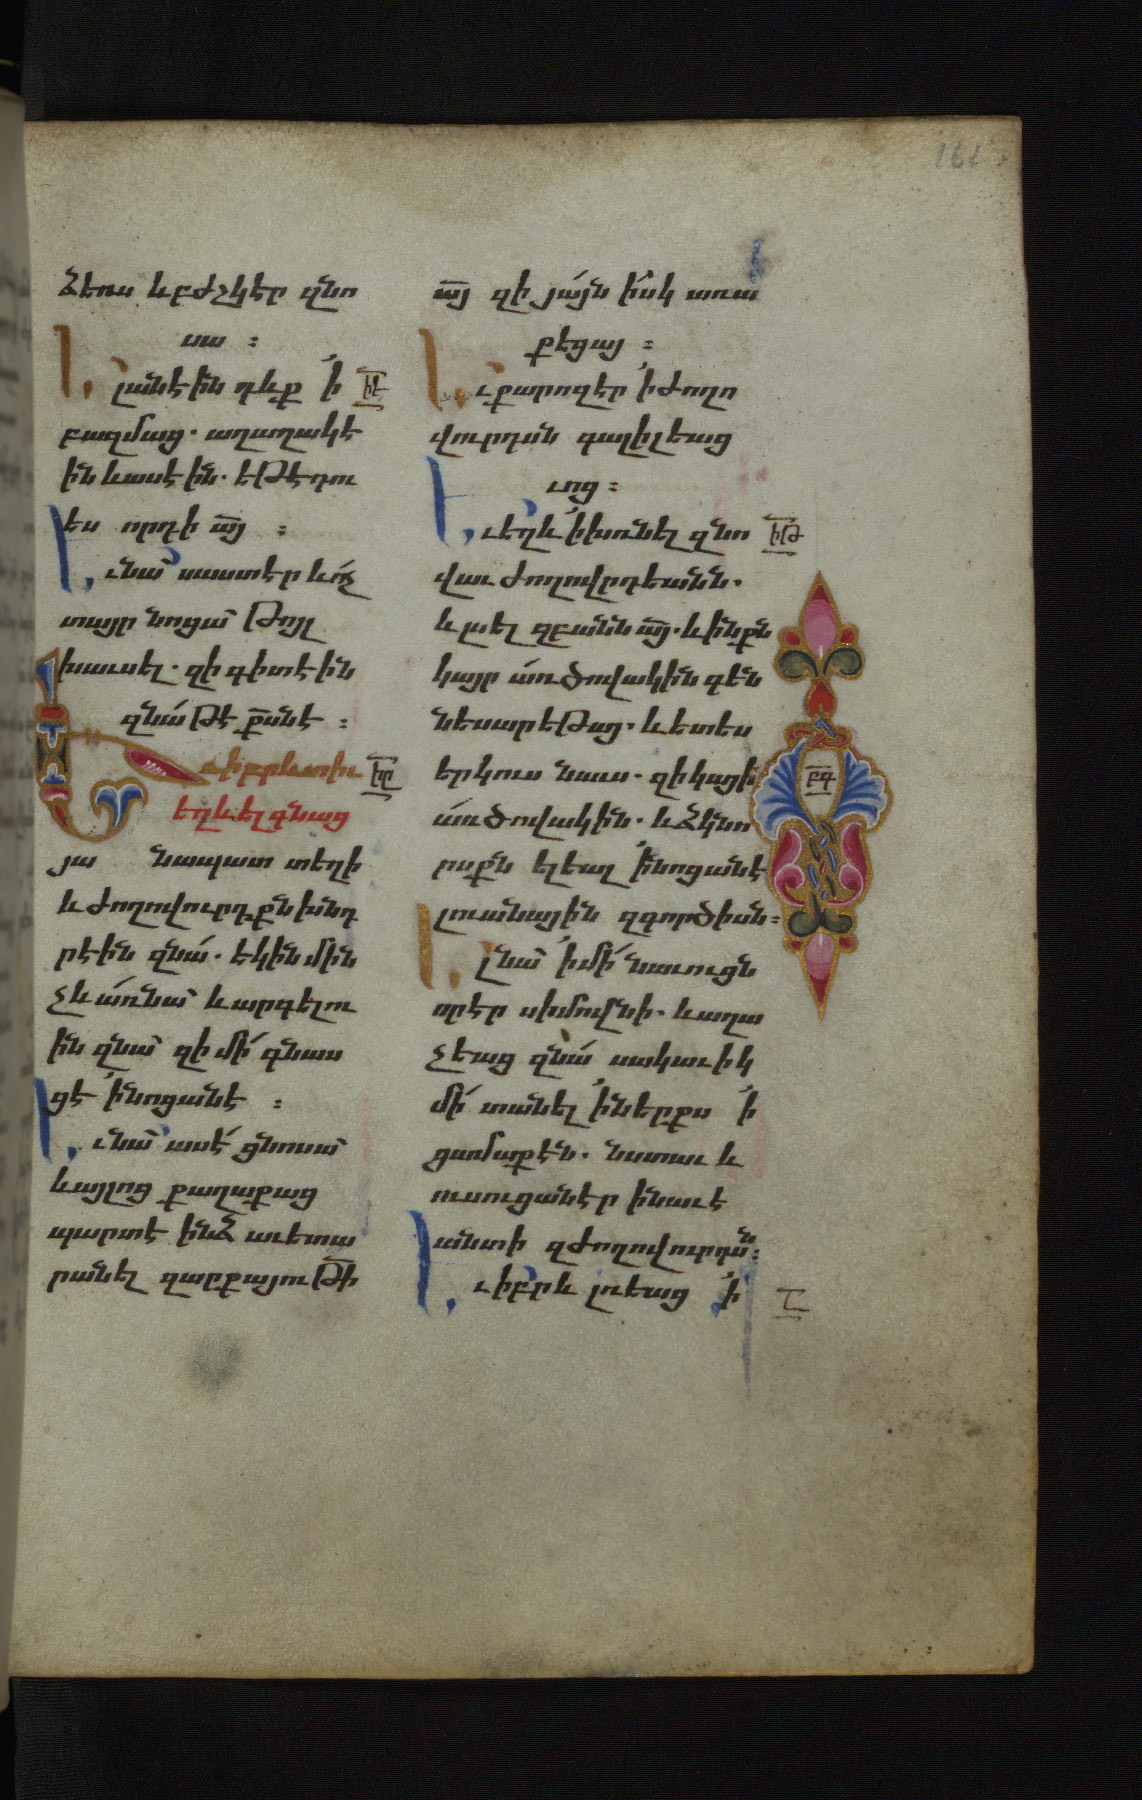 161
ձեռս և բժշկէր զնո
սա ։
Ելանէին դևք ՛ի
ԻԷ
բազմաց. աղաղակէ
ին և ասէին. եթէ դու
ես որդի ա՟յ ։
Եւ նա սաստէր և ոչ
տայր նոցա թոյլ
խաւսել. զի գիտէին
զնա թէ ք՟սն է ։
Եւ իբրև տիւ
ԻԸ
եղև ել գնաց
յա նապատ տեղի
և ժողովուրդքն խնդ
րէին զնա. եկին մին
չև առ նա և արգելու
ին զնա զի մի գնաս
ցէ ՛ի նոցանէ ։
Եւ նա ասէ ցնոսա
և այլոց քաղաքաց
պարտէ ինձ աւետա
րանել զարքայութի
ա՟յ զի յայն իսկ առա
քեցայ ։
Եւ քարոզէր ՛ի ժողո
վուրդսն գալիլեաց
ւոց ։
Եւ եղև ՛ի խռնել զնո
ԻԹ
վաւ ժողովրդեանն.
և լսել զբանն ա՟յ. և ինքն
կայր առ ծովակին գեն
նեսարեթայ. և ետես
երկուս նաւս. զի կային
ԲԳ
առ ծովակին. և ձկնո
րսքն ելեալ ՛ի նոցանէ
լուանային զգործիսն ։
Ելնա ՛ի մի նաւուցն
որ էր սիմովնի. և աղա
չեաց զնա սակաւիկ
մի տանել ՛ի ներքս ՛ի
ցամաքէն. նստաւ և
ուսուցանէր ի նաւէ
անտի զժողովուրդսն ։
Եւ իբրև լռեաց ՛ի
Լ